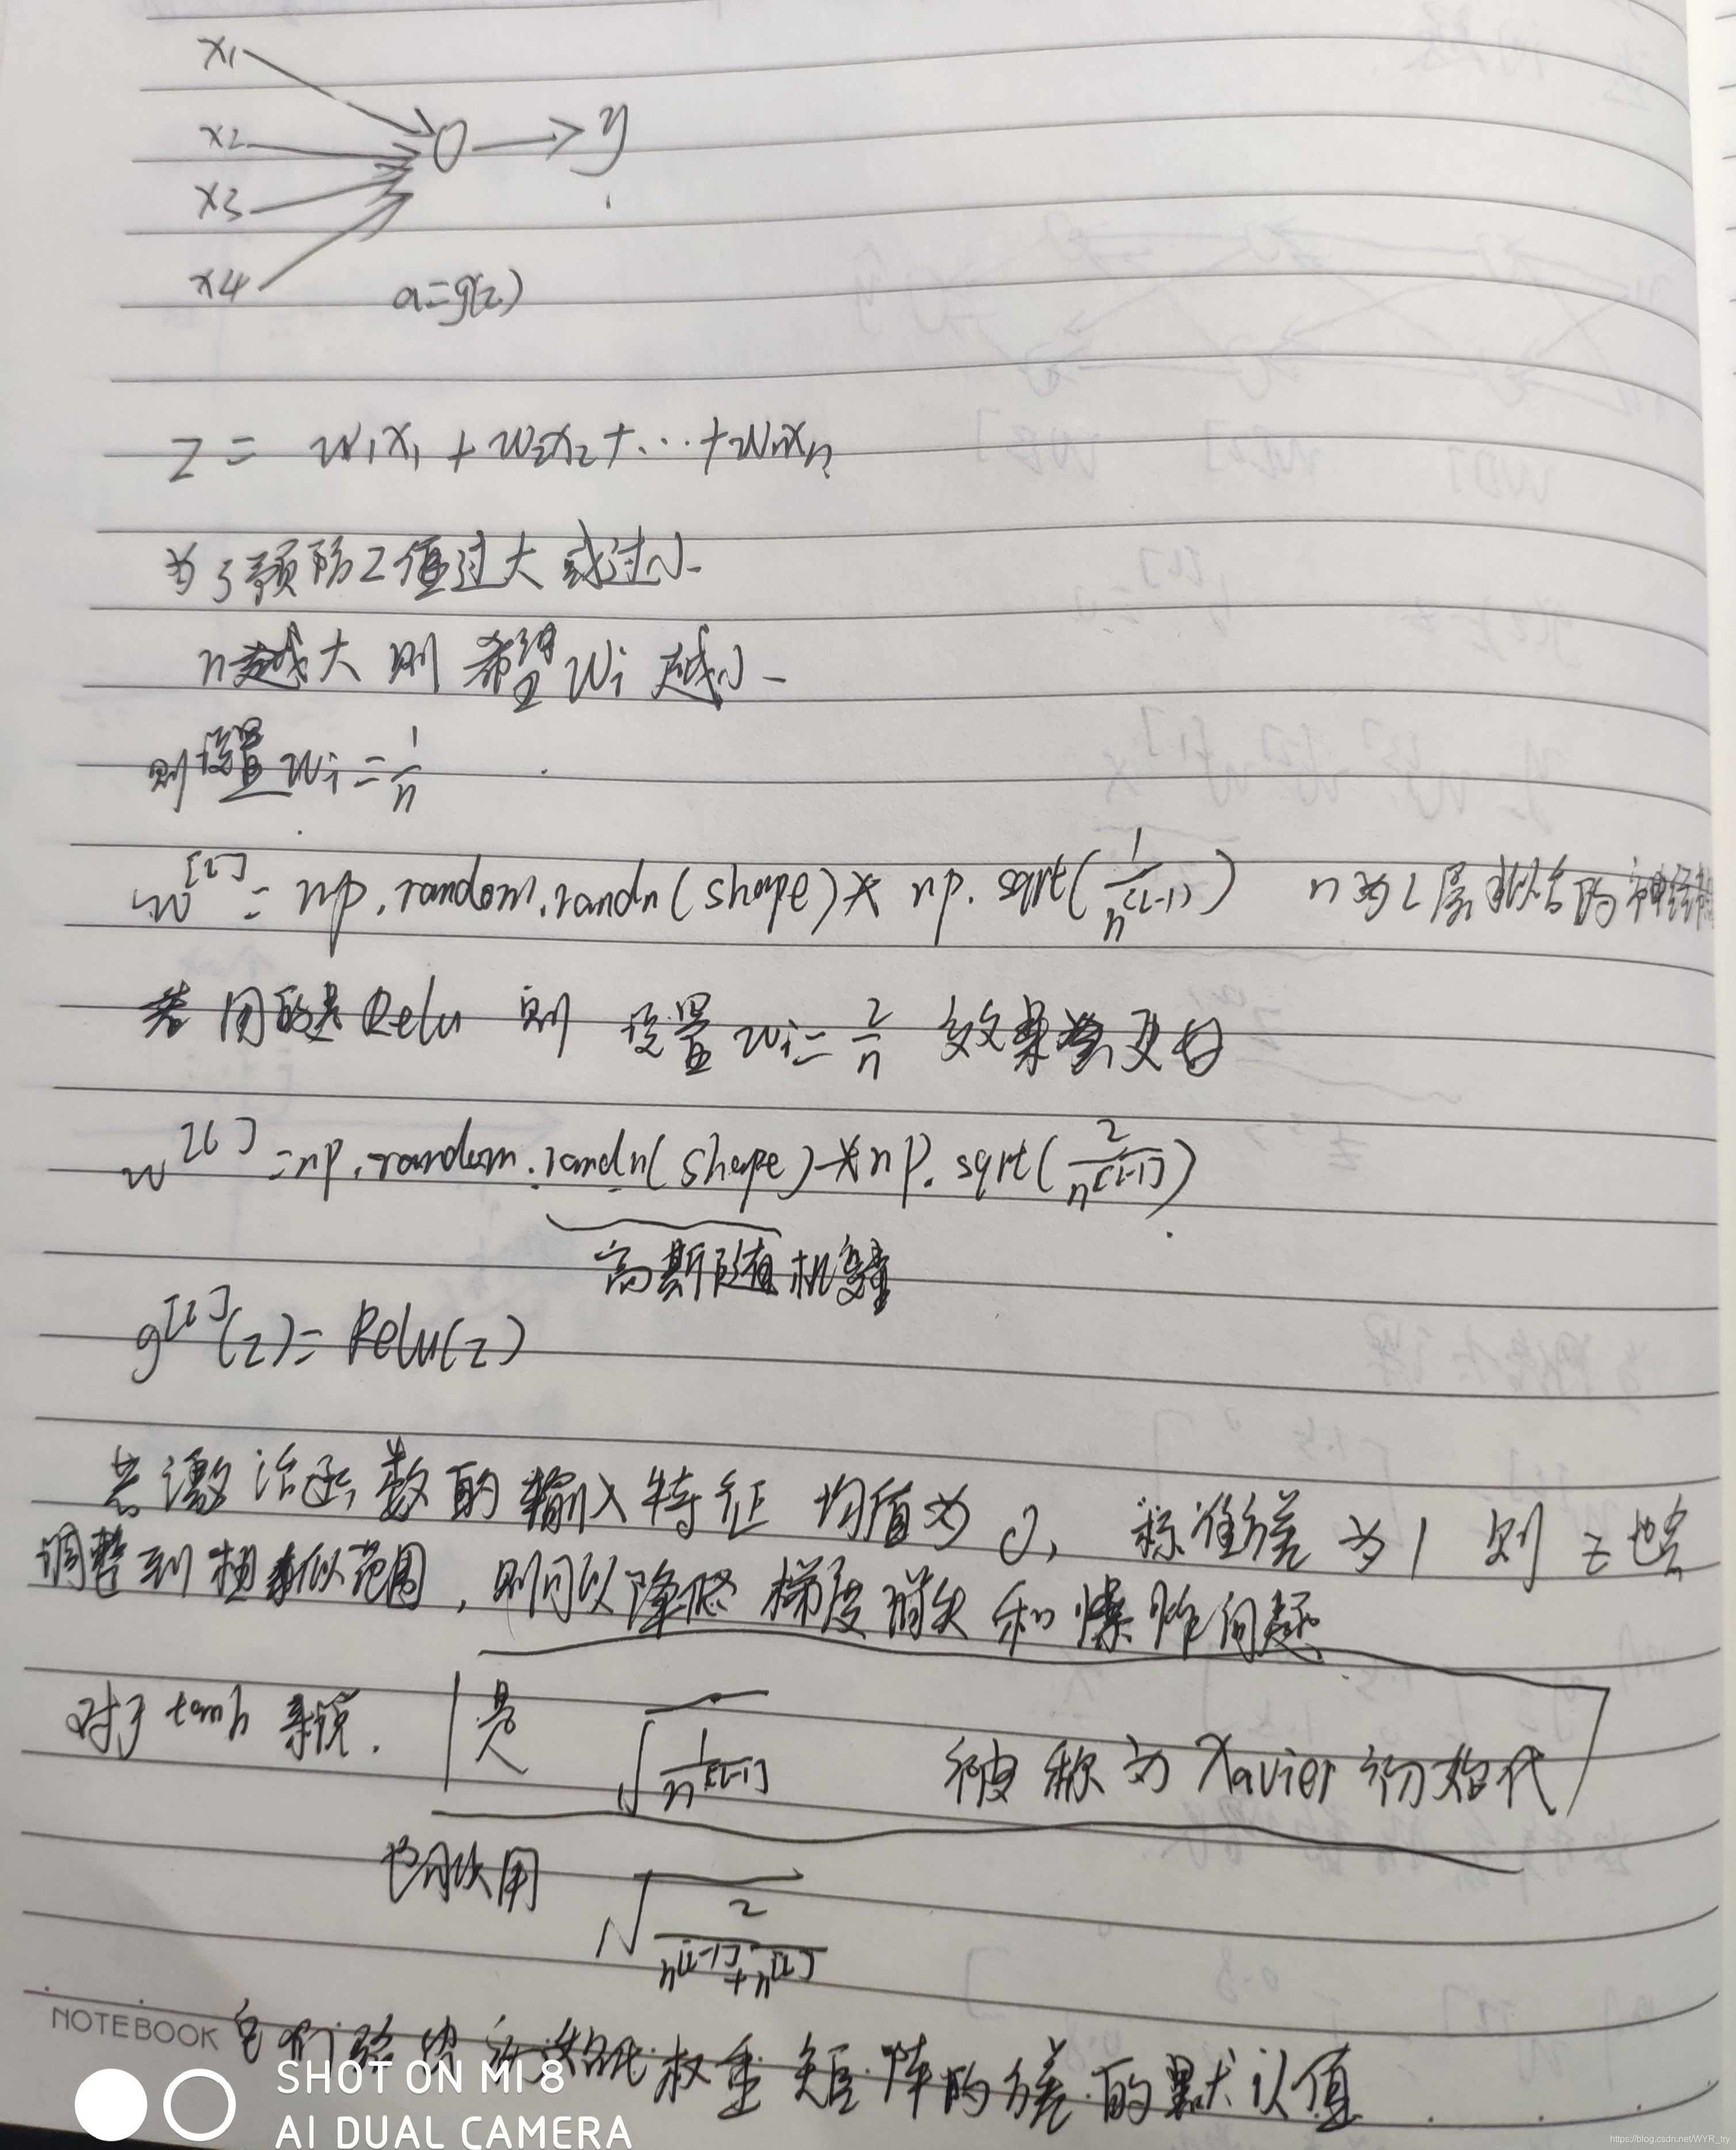 x1
x2
y
x3
x4
a=g(z)
z = w₁x₁ + w₂x₂ + ... + wₙxₙ
为了预防z值过大或过小
n越大 则 希望 wi 越小
则设置 wi = 1/n
w^[l] = np.random.randn(shape) * np.sqrt(1/n^[l-1]) n为l层
若用的是Relu 则 设置 wi = 2/n 效果会更好
w^[l] = np.random.randn(shape) * np.sqrt(2/n^[l-1])
高斯随机变量
g^[l](z) = Relu(z)
若激活函数的输入特征 均值为0, 标准差 为1 则 z也会
调整到相似范围, 则可以降低 梯度消失 和 爆炸问题
对于 tanh 来说. 是 √(1/n^[l-1]) 被称为 Xavier 初始化
也可以用 √(2/(n^[l-1]+n^[l]))
NOTEBOOK 它们给出 初始化 权重矩阵的方差的默认值
SHOT ON MI 8
AI DUAL CAMERA
https://blog.csdn.net/WYR_try